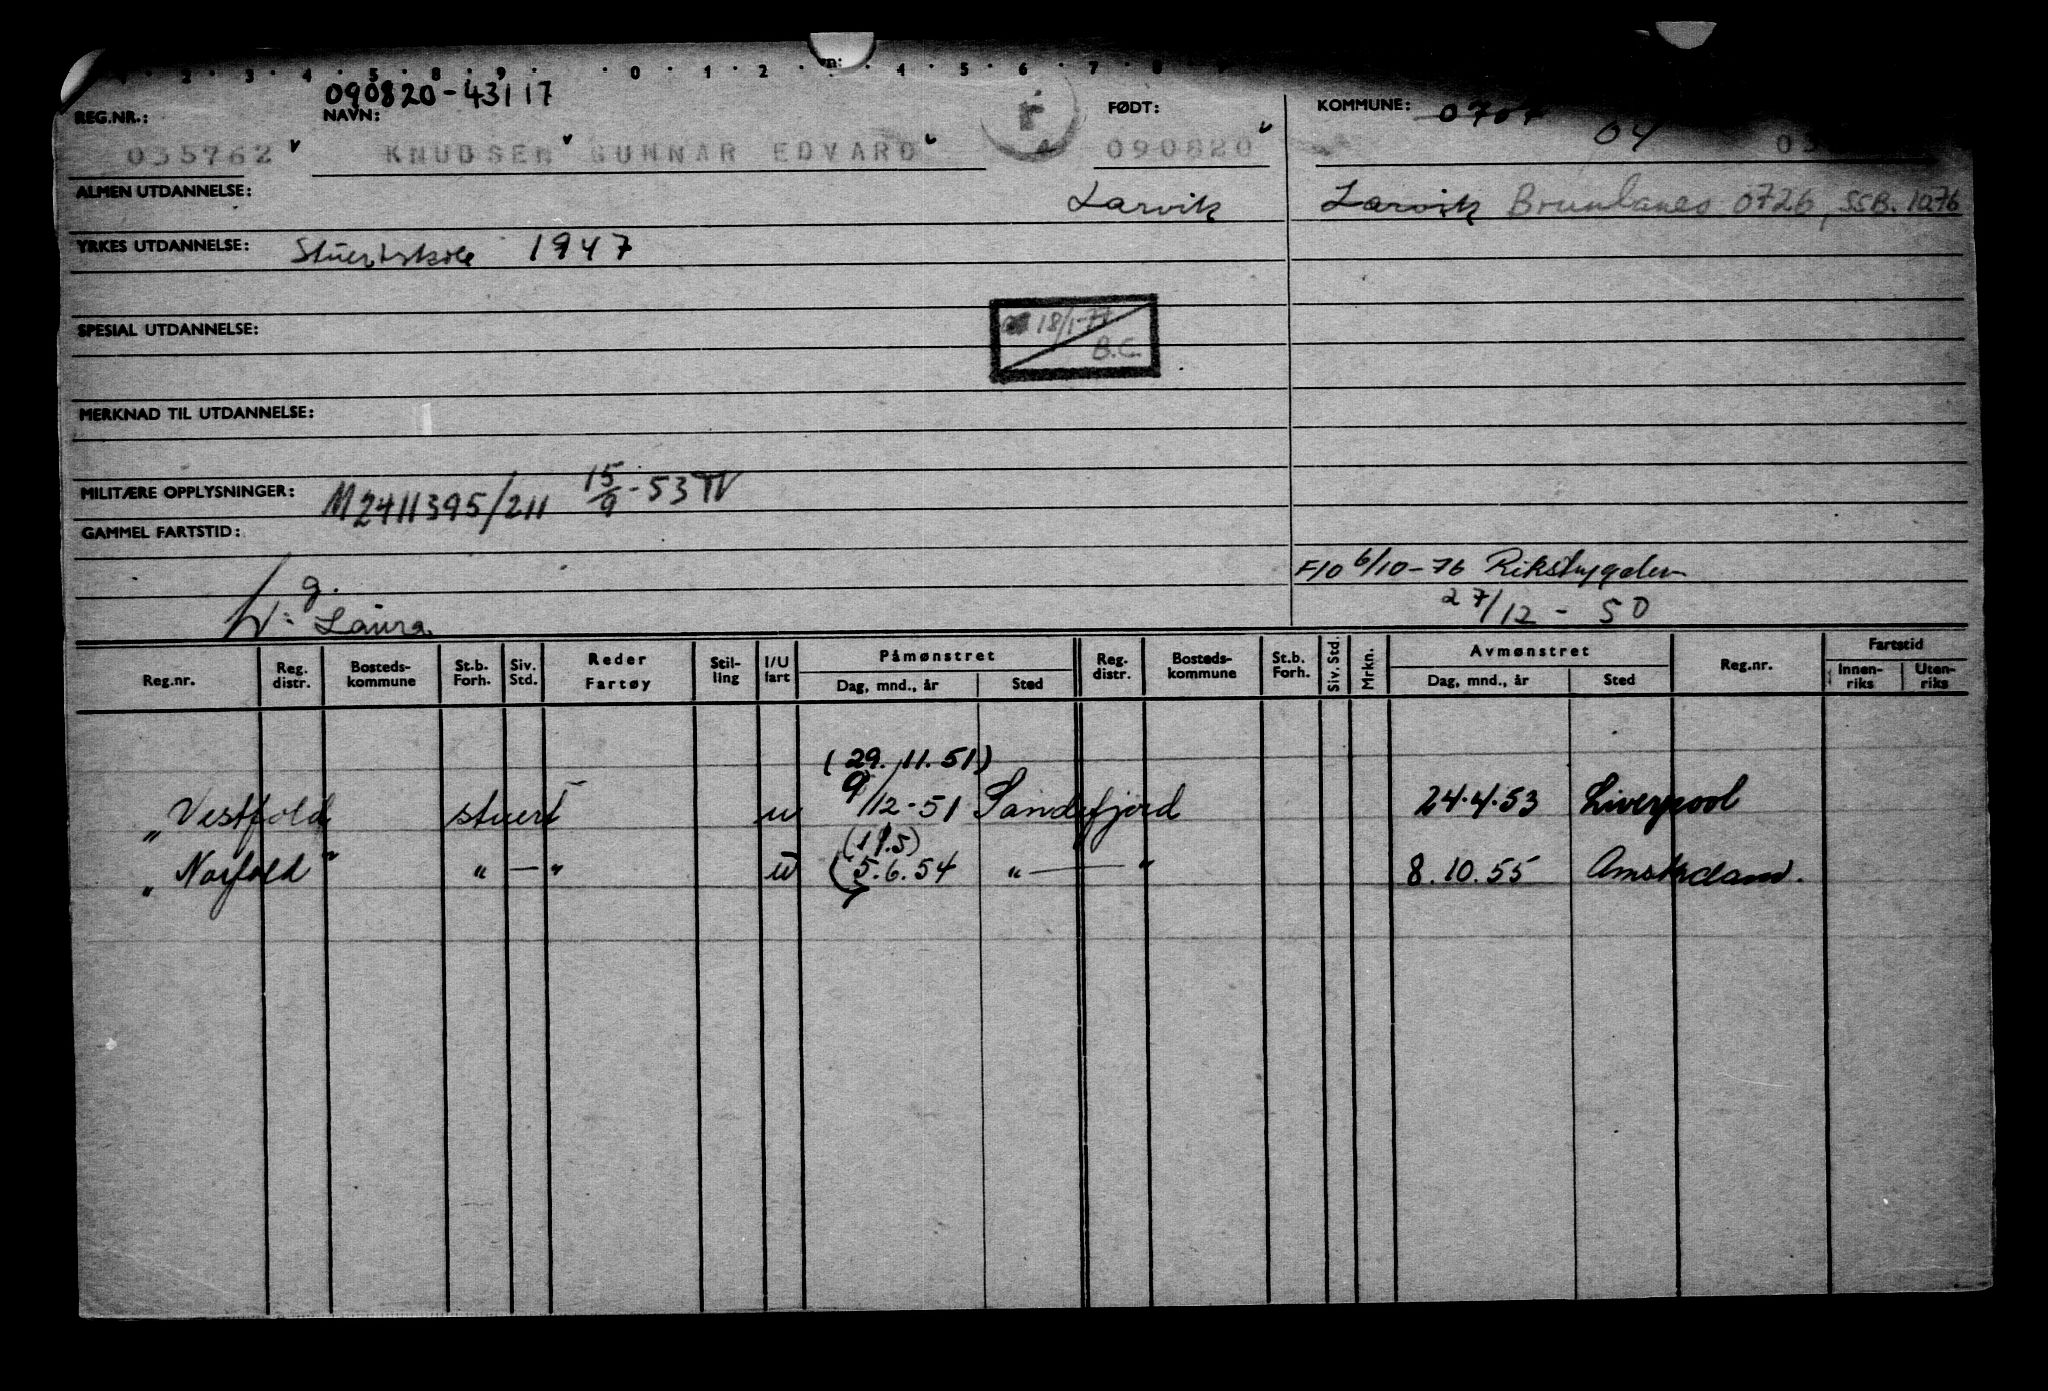 090820-43117
REG.NR.: NAVN: FØDT: KOMMUNE: 0707 04
035762 KNUDSEN GUNNAR EDVARD 090820
ALMEN UTDANNELSE: Larvik Larvik Brunlanes 0726, SSB. 1076
YRKES UTDANNELSE: Stuertskole 1947
18/1-77
SPESIAL UTDANNELSE:
B.C.
MERKNAD TIL UTDANNELSE:
MILITÆRE OPPLYSNINGER: M2411395/211 15/9-53 TV
GAMMEL FARTSTID:
F10 6/10-76 Rikstrygden
g. 27/12-50
Laura
Reg.nr. Reg. distr. Bosteds-kommune St.b. Forh. Siv. Std. Reder Fartøy Stil-ling I/U fart Påmønstret Dag, mnd., år Sted Reg. distr. Bosteds-kommune St.b. Forh. Siv. Std. Mrkn. Avmønstret Dag, mnd., år Sted Reg.nr. Fartstid Innen-riks Uten-riks
(29.11.51)
" Vestfold stuert u 9/12-51 Sandefjord 24.4.53 Liverpool
" Norfold " " — " u (5.6.54 " — " 8.10.55 Amsterdam.